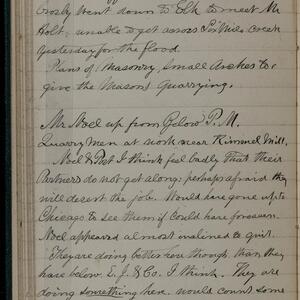 Crosby went down to Elk to meet Mr
Holt; unable to get across Six Mile Creek
yesterday for the flood.
Plans of Masonry, Small Arches to
give the Masons Quarrying.
Mr. Noel up from Below P.M.
Quarry men at work near Rimmel Mill.
Noel & Pat I think feel badly that their
Partners do not get along; perhaps afraid they
will desert the job. Would have gone up to
Chicago to see them if could have foreseen.
Noel appeared almost inclined to quit.
They are doing better here though than they
have below. L. J. & Co. I think. They are
doing something here, would count some